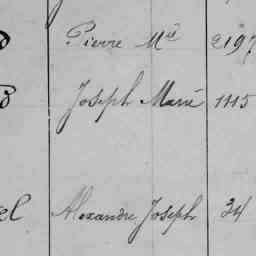 d Pierre Mie 2197
d Joseph Marie 1115
el Alexandre Joseph 34